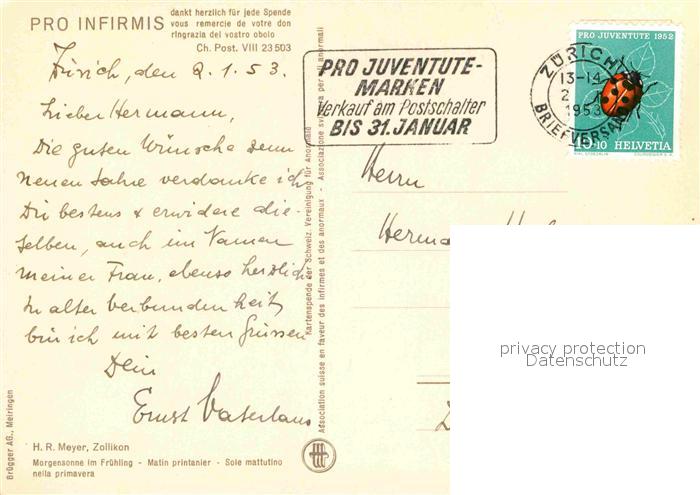 PRO INFIRMIS
dankt herzlich für jede Spende
vous remercie de votre don
ringrazia del vostro obolo
Ch. Post. VIII 23 503
Zürich, den 2. 1. 53.
Lieber Hermann,
Die guten Wünsche zum
neuen Jahre verdanke ich
Dir bestens & erwidere die-
selben, auch im Namen
meiner Frau, ebenso herzlich.
In alter Verbundenheit
bin ich mit besten Grüssen
Dein
Ernst
H. R. Meyer, Zollikon
Morgensonne im Frühling - Matin printanier - Sole mattutino
nella primavera
Brügger AG., Meiringen
Kartenspende der Schweiz. Vereinigung für Anormale
Association suisse en faveur des infirmes et des anormaux - Associazione svizzera per gli anormali
PRO JUVENTUTE-
MARKEN
Verkauf am Postschalter
BIS 31. JANUAR
ZÜRICH
13-14
1953
BRIEFVERSAND
PRO JUVENTUTE 1952
10 HELVETIA
Herrn
privacy protection
Datenschutz